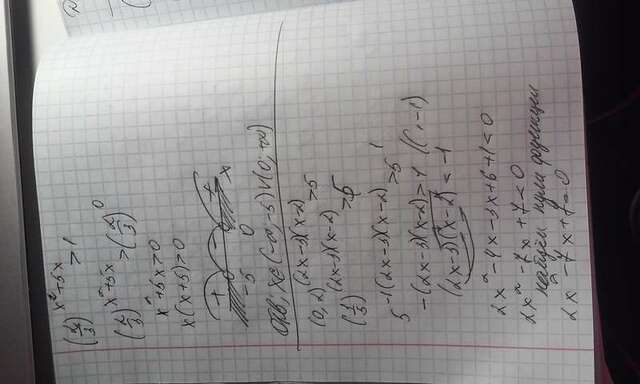 (2/3)^(x²+5x) > 1
(2/3)^(x²+5x) > (2/3)^0
x²+5x>0
x(x+5)>0
+ - +
-5 0 x
Отв; x∈(-∞,-5)∨(0;+∞)
(0,2)^((2x-3)(x-2)) >5
(1/5)^((2x-3)(x-2)) >5
5^(-1(2x-3)(x-2)) >5^1
-(2x-3)(x-2)>1 |(·,-1)
(2x-3)(x-2)<-1
2x²-4x-3x+6+1<0
2x²-7x+7<0
найдём нули функции
2x²-7x+7=0